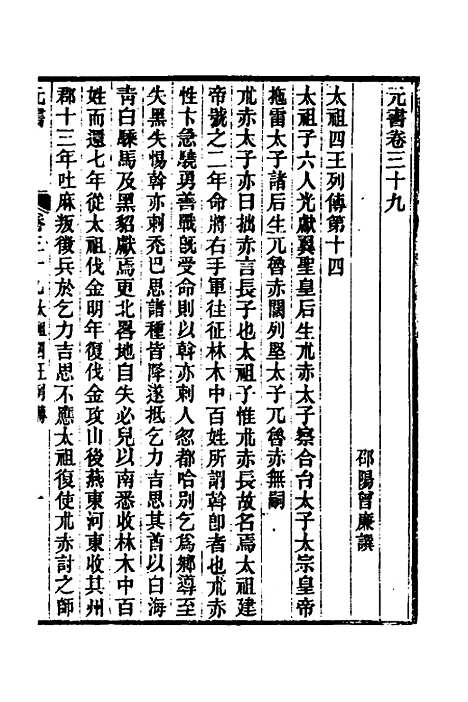 元書卷三十九
邵陽曾廉譔
太祖四王列傳第十四
太祖子六人光獻翼聖皇后生朮赤太子察合台太子太宗皇帝
拖雷太子諸后生兀魯赤闊列堅太子兀魯赤無嗣
朮赤太子亦曰拙赤言長子也太祖子惟朮赤長故名焉太祖建
帝號之二年命將右手軍往征林木中百姓所謂斡卽者也朮赤
性卞急驍勇善戰旣受命則以斡亦剌人忽都哈別乞爲鄉導至
失黑失惕斡亦剌禿巴思諸種皆降遂抵乞力吉思其酋以白海
靑白騍馬及黑貂獻焉更北畧地自失必兒以南悉收林木中百
姓而還七年從太祖伐金明年復伐金攻山後燕東河東收其州
郡十三年吐麻叛後兵於乞力吉思不應太祖復使朮赤討之師
元書
卷三十九太祖四王列傳
一